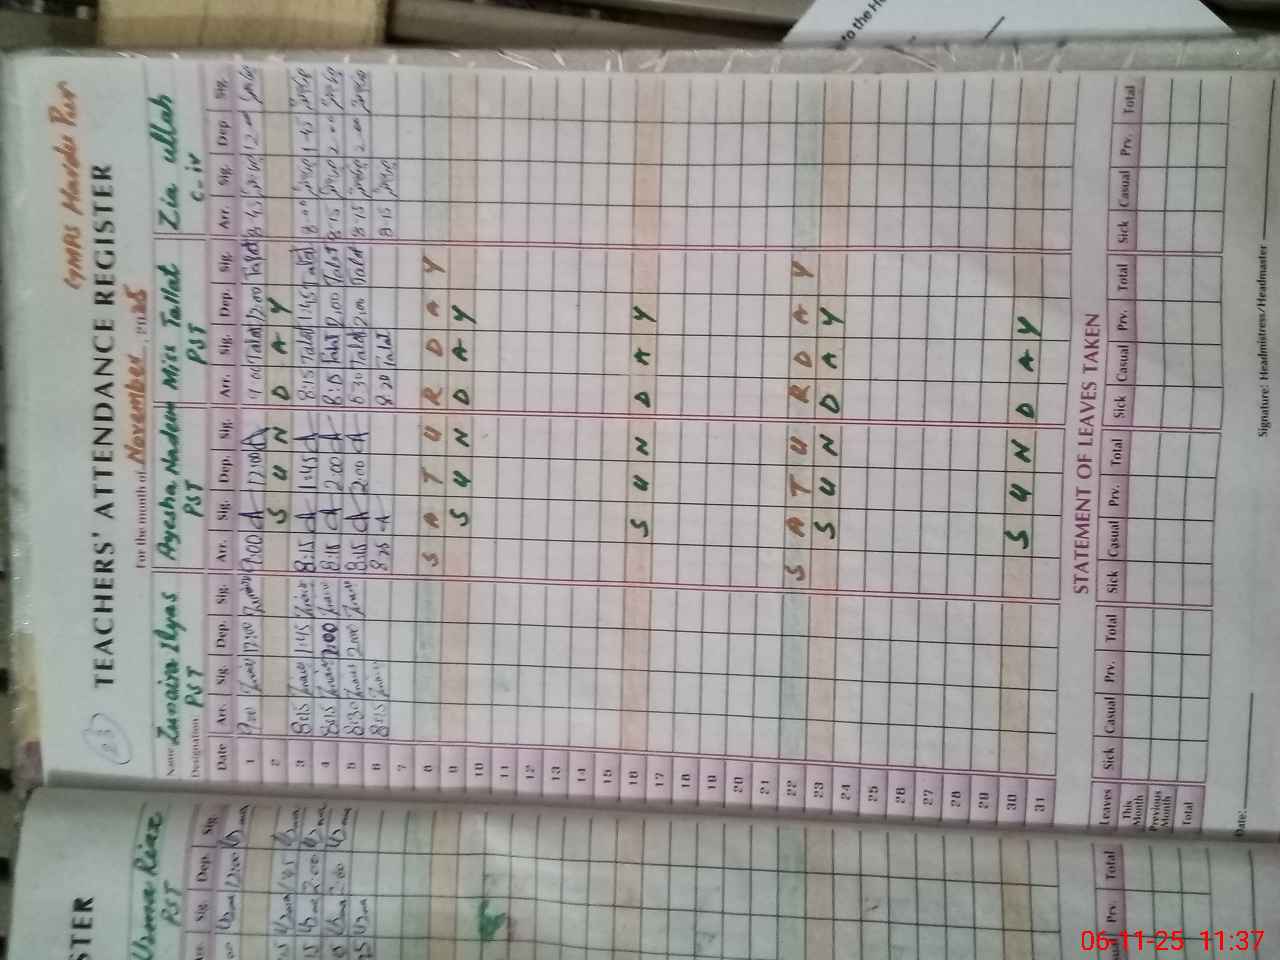 to the H
GMPS Haveli Pur
TEACHERS' ATTENDANCE REGISTER
23
For the month of November 2025
Name Zunaira Ilyas Ayesha Nadeem Miss Tallat Zia ullah
Designation PST PST PST C-iv
Date Arr. Sig. Dep. Sig. Arr. Sig. Dep. Sig. Arr. Sig. Dep. Sig. Arr. Sig. Dep Sig.
1 9:00 12:00 9:00 A 12:00 A 9:00 Talat 12:00 Talat 8-45 12-00
2 S U N D A Y
3 8:15 1:45 8:15 A 1:45 A 8:15 Talat 1:45 Talat 8-00 1-45
4 8:15 2:00 8:15 A 2:00 A 8:15 Talat 2:00 Talat 8-15 2-00
5 8:30 2:00 8:15 A 2:00 A 8:30 Talat 2:00 Talat 8-15 2-00
6 8:15 8:25 A 8:20 Talat 8-15
7
8 S A T U R D A Y
9 S U N D A Y
10
11
12
13
14
15
16 S U N D A Y
17
18
19
20
21
22 S A T U R D A Y
23 S U N D A Y
24
25
26
27
28
29
30 S U N D A Y
31
STATEMENT OF LEAVES TAKEN
Leaves Sick Casual Prv. Total Sick Casual Prv. Total Sick Casual Prv. Total Sick Casual Prv. Total
This Month
Previous Month
Total
Date: Signature: Headmistress/Headmaster
STER
Uzma Riaz
PST
Sig. Dep. Sig.
Uzma 12:00 Uzma
Uzma 1:45 Uzma
Uzma 2:00 Uzma
Uzma 2:00 Uzma
Uzma
Prv. Total
06-11-25 11:37